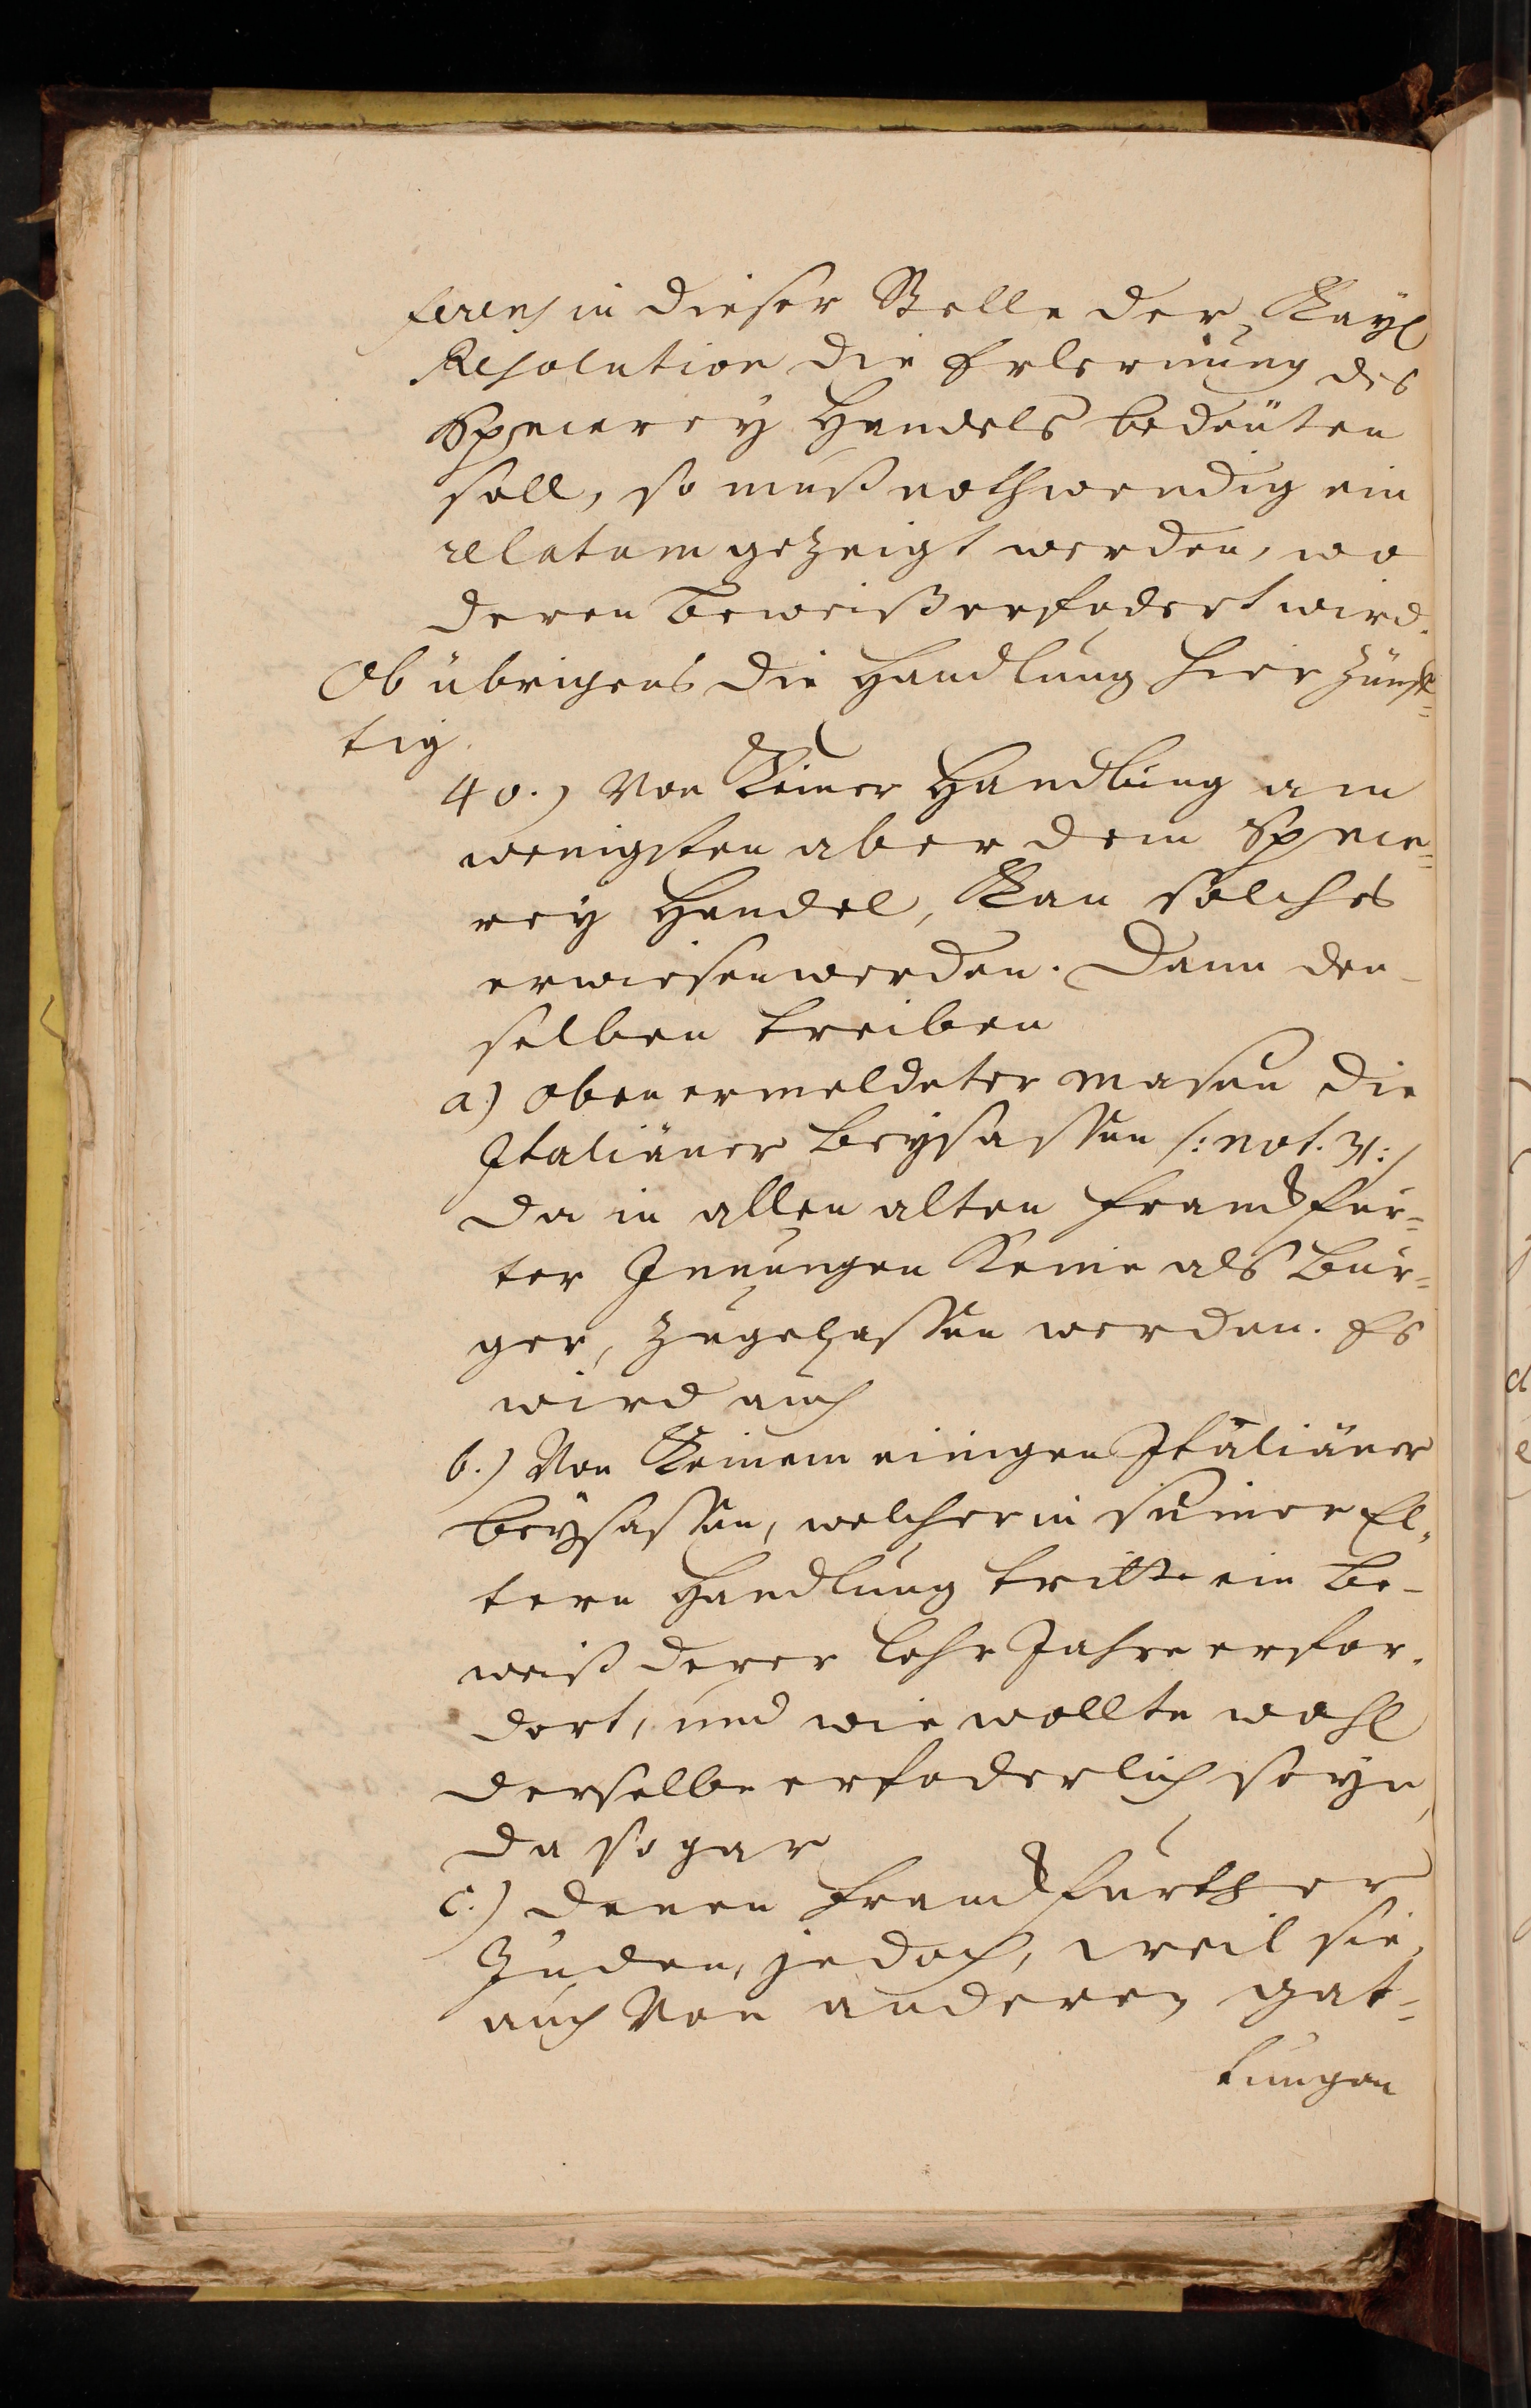 ferens in dieser Stelle der Kayl
Resolution die Erlernung des
Specerey Handels bedeuten
soll, so muß nothwendig ein
relatum gezeigt werden, wo
deren Beweiß erfodert wird.
Ob übrigens die Handlung hier zünf=
tig.
40.) Von Keiner Handlung am
wenigsten aber dem Spece=
rey Handel, Kan solches
erwiesen werden. Dann den-
selben treiben
a.) obenermeldeter masen die
Italiäner Beysassen /: not. 31:/
da in allen alten Franckfur=
ter Innungen Keine als Bür=
ger, zugelassen werden. Es
wird auch
b.) Von Keinem einigen Italiäner
Beysassen, welcher in seiner El=
tern Handlung tritt ein Be-
weiß derer Lehr Jahre erfor-
dert, und wie wollte wohl
derselbe erfoderlich seyn,
da sogar
c.) denen Franckfurther
Juden, jedoch, weil sie
auch Von anderen gat=
tungen